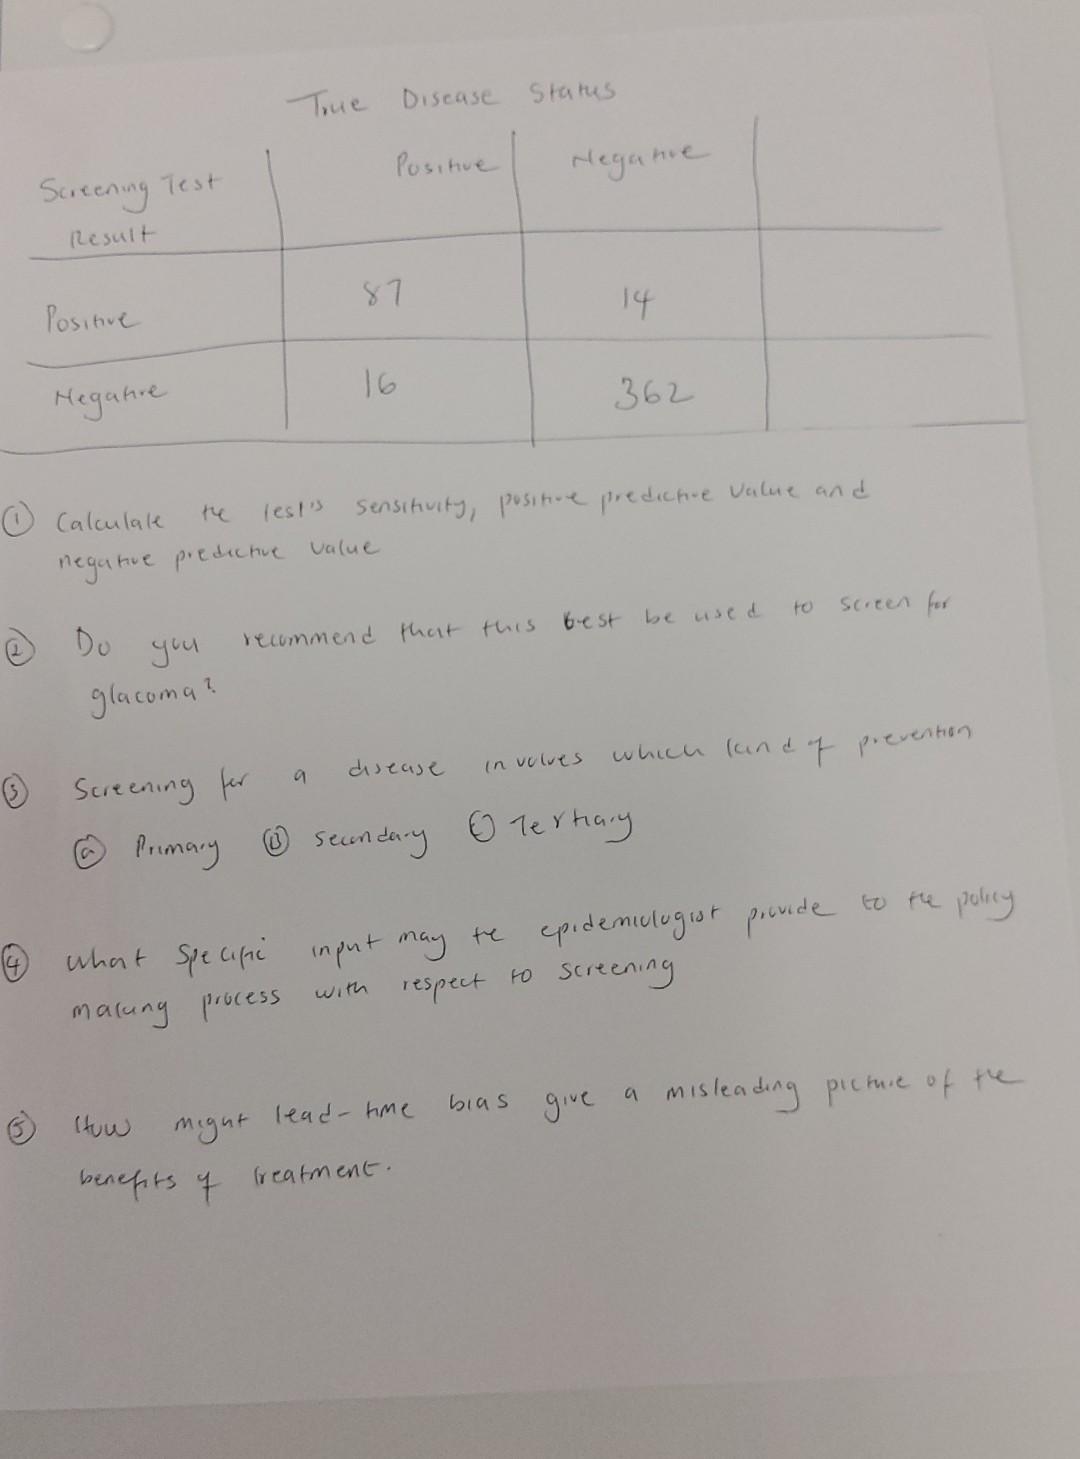 True Disease Status
Screening Test Positive Negative
Result
Positive 87 14
Negative 16 362
① Calculate the test's sensitivity, positive predictive value and
negative predictive value
② Do you recommend that this test be used to screen for
glacoma?
③ Screening for a disease involves which kind of prevention
ⓐ Primary Ⓑ secondary Ⓒ Tertiary
④ What specific input may the epidemiologist provide to the policy
making process with respect to screening
⑤ How might lead-time bias give a misleading picture of the
benefits of treatment.